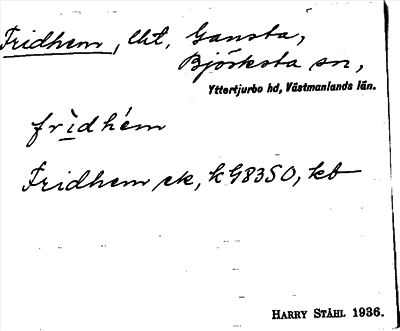 Fridhem, lht, Gansta,
Björksta sn,
Yttertjurbo hd, Västmanlands län.
frìdhém
Fridhem ek, k G83SO, kb
HARRY STÅHL 1936.